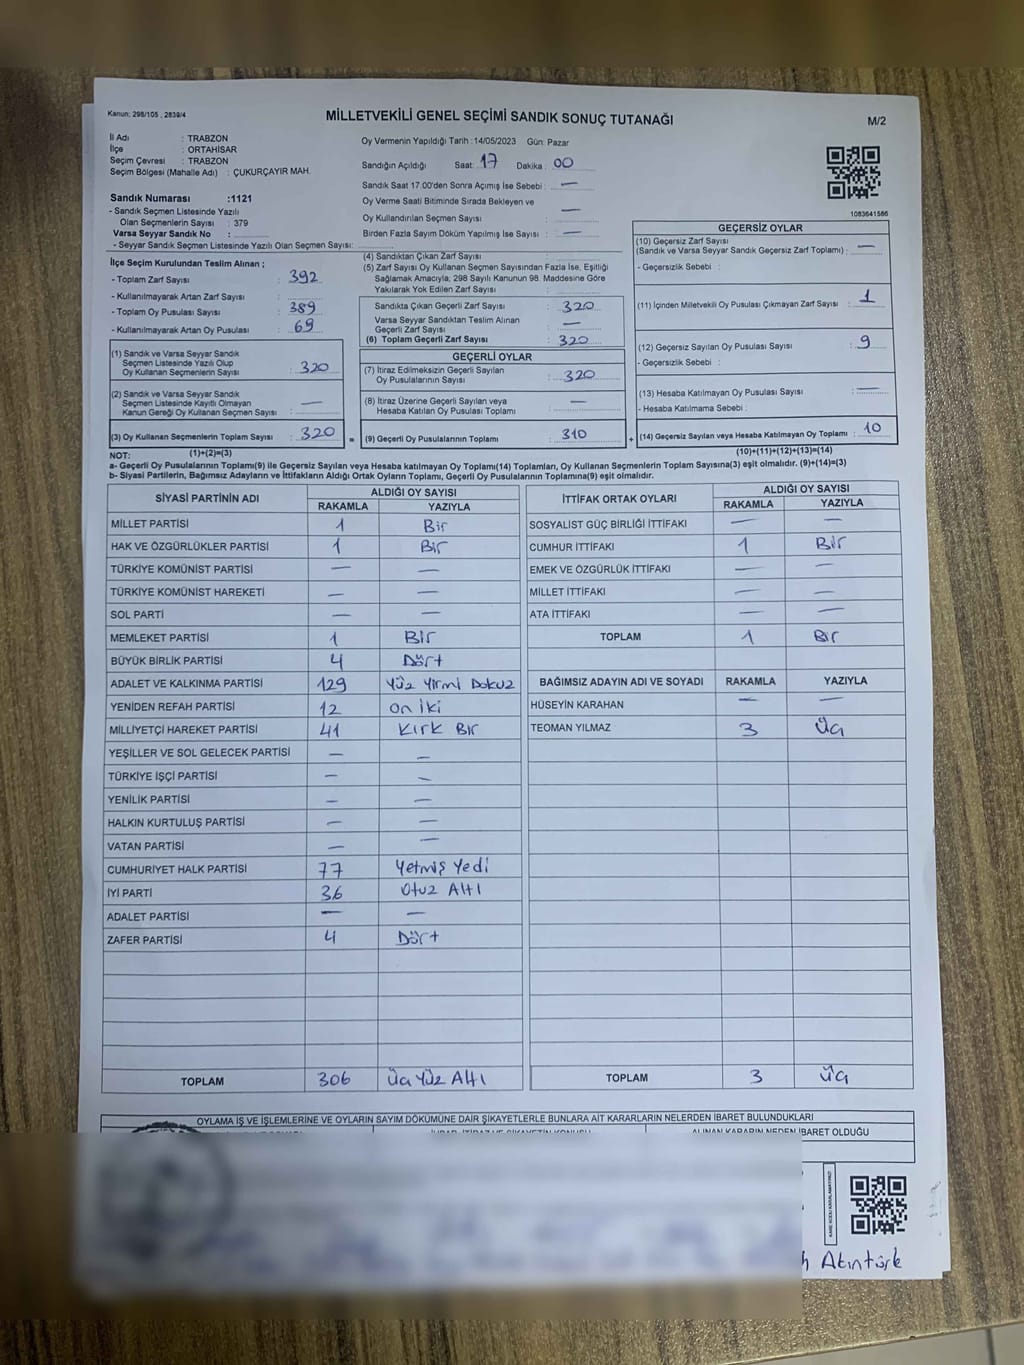 Kanun: 298/105 , 2839/4
MİLLETVEKİLİ GENEL SEÇİMİ SANDIK SONUÇ TUTANAĞI
M/2
İl Adı : TRABZON
İlçe : ORTAHİSAR
Seçim Çevresi : TRABZON
Seçim Bölgesi (Mahalle Adı) : ÇUKURÇAYIR MAH.
Sandık Numarası :1121
- Sandık Seçmen Listesinde Yazılı
Olan Seçmenlerin Sayısı : 379
Varsa Seyyar Sandık No :
- Seyyar Sandık Seçmen Listesinde Yazılı Olan Seçmen Sayısı:
Oy Vermenin Yapıldığı Tarih : 14/05/2023 Gün: Pazar
Sandığın Açıldığı Saat: 17 Dakika : 00
Sandık Saat 17.00'den Sonra Açımış İse Sebebi : —
Oy Verme Saati Bitiminde Sırada Bekleyen ve
Oy Kullandırılan Seçmen Sayısı : —
Birden Fazla Sayım Döküm Yapılmış İse Sayısı : —
1083641566
İlçe Seçim Kurulundan Teslim Alınan ;
- Toplam Zarf Sayısı : 392
- Kullanılmayarak Artan Zarf Sayısı :
- Toplam Oy Pusulası Sayısı : 389
- Kullanılmayarak Artan Oy Pusulası : 69
(1) Sandık ve Varsa Seyyar Sandık
Seçmen Listesinde Yazılı Olup
Oy Kullanan Seçmenlerin Sayısı : 320
(2) Sandık ve Varsa Seyyar Sandık
Seçmen Listesinde Kayıtlı Olmayan
Kanun Gereği Oy Kullanan Seçmen Sayısı : —
(3) Oy Kullanan Seçmenlerin Toplam Sayısı : 320
(4) Sandıktan Çıkan Zarf Sayısı :
(5) Zarf Sayısı Oy Kullanan Seçmen Sayısından Fazla İse, Eşitliği
Sağlamak Amacıyla; 298 Sayılı Kanunun 98. Maddesine Göre
Yakılarak Yok Edilen Zarf Sayısı :
Sandıkta Çıkan Geçerli Zarf Sayısı : 320
Varsa Seyyar Sandıktan Teslim Alınan
Geçerli Zarf Sayısı : —
(6) Toplam Geçerli Zarf Sayısı : 320
GEÇERLİ OYLAR
(7) İtiraz Edilmeksizin Geçerli Sayılan
Oy Pusulalarının Sayısı : 320
(8) İtiraz Üzerine Geçerli Sayılan veya
Hesaba Katılan Oy Pusulası Toplamı : —
= (9) Geçerli Oy Pusulalarının Toplamı : 310
GEÇERSİZ OYLAR
(10) Geçersiz Zarf Sayısı
(Sandık ve Varsa Seyyar Sandık Geçersiz Zarf Toplamı) : —
- Geçersizlik Sebebi :
(11) İçinden Milletvekili Oy Pusulası Çıkmayan Zarf Sayısı : 1
(12) Geçersiz Sayılan Oy Pusulası Sayısı : 9
- Geçersizlik Sebebi :
(13) Hesaba Katılmayan Oy Pusulası Sayısı : —
- Hesaba Katılmama Sebebi :
+ (14) Geçersiz Sayılan veya Hesaba Katılmayan Oy Toplamı : 10
NOT: (1)+(2)=(3)
(10)+(11)+(12)+(13)=(14)
a- Geçerli Oy Pusulalarının Toplamı(9) ile Geçersiz Sayılan veya Hesaba katılmayan Oy Toplamı(14) Toplamları, Oy Kullanan Seçmenlerin Toplam Sayısına(3) eşit olmalıdır. (9)+(14)=(3)
b- Siyasi Partilerin, Bağımsız Adayların ve İttifakların Aldığı Ortak Oyların Toplamı, Geçerli Oy Pusulalarının Toplamına(9) eşit olmalıdır.
SİYASİ PARTİNİN ADI ALDIĞI OY SAYISI
RAKAMLA YAZIYLA
MİLLET PARTİSİ 1 Bir
HAK VE ÖZGÜRLÜKLER PARTİSİ 1 Bir
TÜRKİYE KOMÜNİST PARTİSİ — —
TÜRKİYE KOMÜNİST HAREKETİ — —
SOL PARTİ — —
MEMLEKET PARTİSİ 1 Bir
BÜYÜK BİRLİK PARTİSİ 4 Dört
ADALET VE KALKINMA PARTİSİ 129 Yüz Yirmi Dokuz
YENİDEN REFAH PARTİSİ 12 On iki
MİLLİYETÇİ HAREKET PARTİSİ 41 Kırk Bir
YEŞİLLER VE SOL GELECEK PARTİSİ — —
TÜRKİYE İŞÇİ PARTİSİ — —
YENİLİK PARTİSİ — —
HALKIN KURTULUŞ PARTİSİ — —
VATAN PARTİSİ — —
CUMHURİYET HALK PARTİSİ 77 Yetmiş Yedi
İYİ PARTİ 36 Otuz Altı
ADALET PARTİSİ — —
ZAFER PARTİSİ 4 Dört
TOPLAM 306 Üç Yüz Altı
İTTİFAK ORTAK OYLARI ALDIĞI OY SAYISI
RAKAMLA YAZIYLA
SOSYALİST GÜÇ BİRLİĞİ İTTİFAKI — —
CUMHUR İTTİFAKI 1 Bir
EMEK VE ÖZGÜRLÜK İTTİFAKI — —
MİLLET İTTİFAKI — —
ATA İTTİFAKI — —
TOPLAM 1 Bir
BAĞIMSIZ ADAYIN ADI VE SOYADI RAKAMLA YAZIYLA
HÜSEYİN KARAHAN — —
TEOMAN YILMAZ 3 Üç
TOPLAM 3 Üç
OYLAMA İŞ VE İŞLEMLERİNE VE OYLARIN SAYIM DÖKÜMÜNE DAİR ŞİKAYETLERLE BUNLARA AİT KARARLARIN NELERDEN İBARET BULUNDUKLARI
ALINAN KARARIN NEDEN İBARET OLDUĞU
Akıntürk